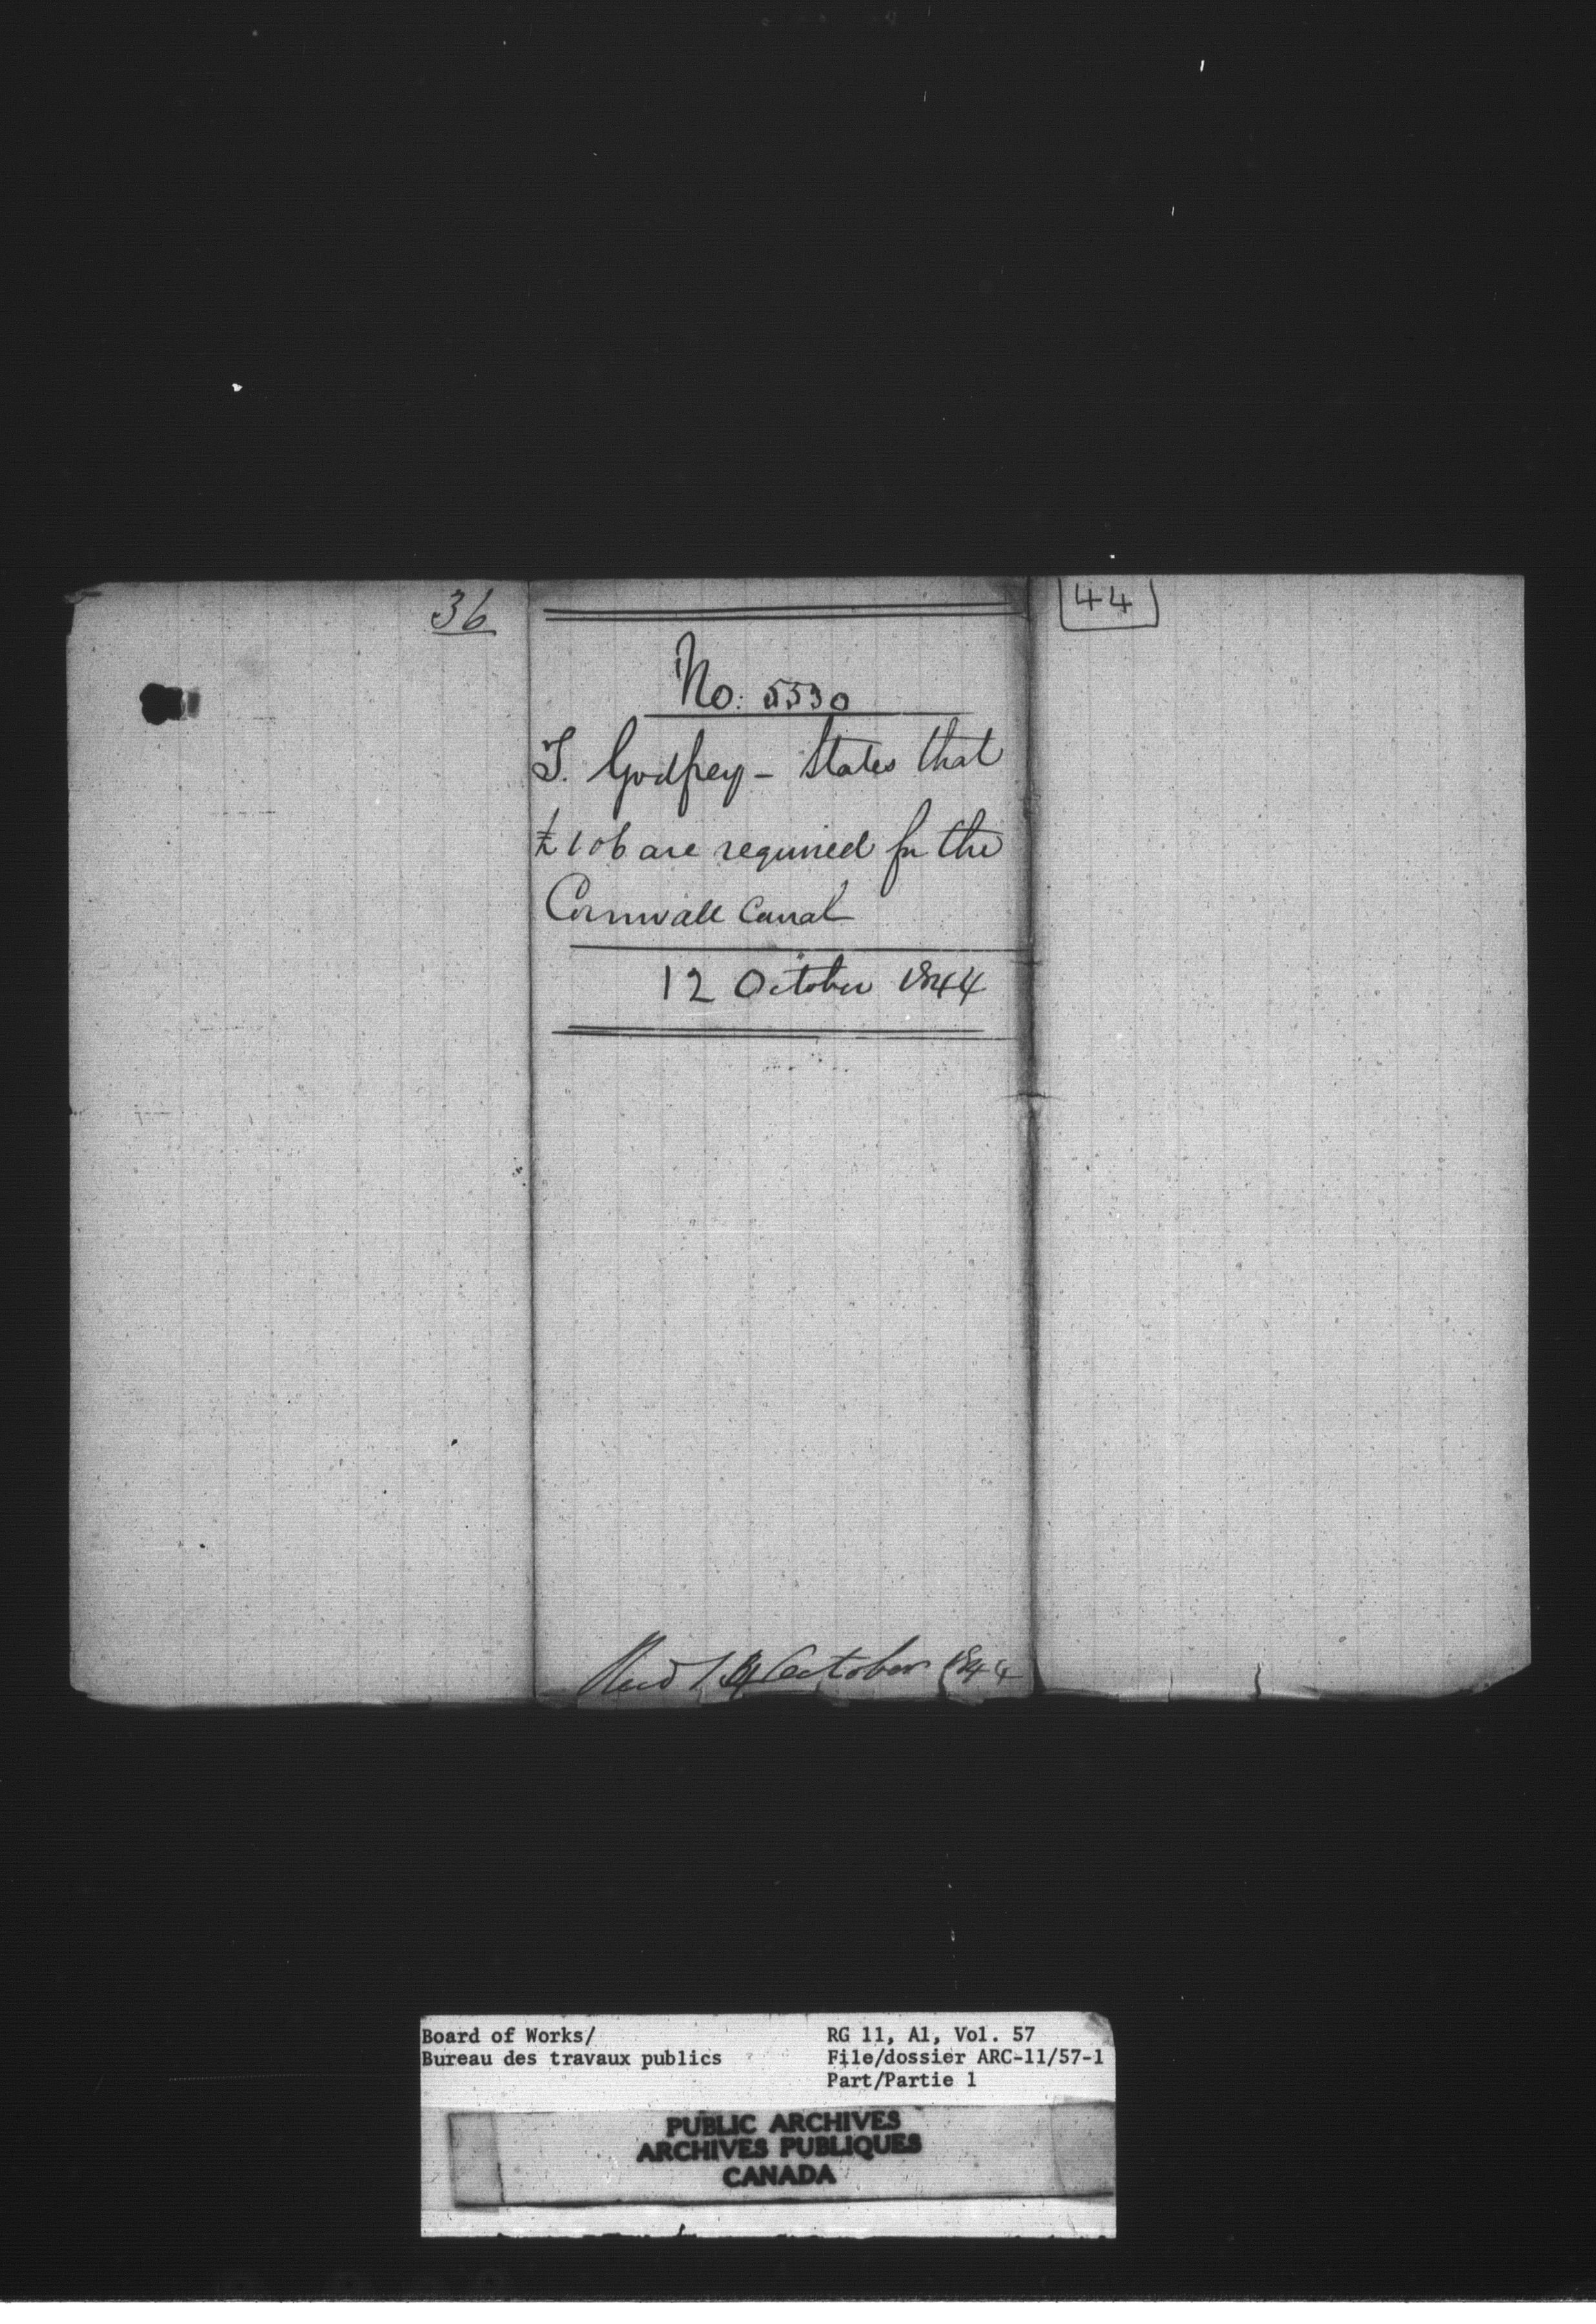 36
44
No. 5530
T. Godfrey - States that
£106 are required for the
Cornwall Canal
12 October 1844
Recd 14 October 1844
Board of Works/
Bureau des travaux publics
RG 11, A1, Vol. 57
File/dossier ARC-11/57-1
Part/Partie 1
PUBLIC ARCHIVES
ARCHIVES PUBLIQUES
CANADA